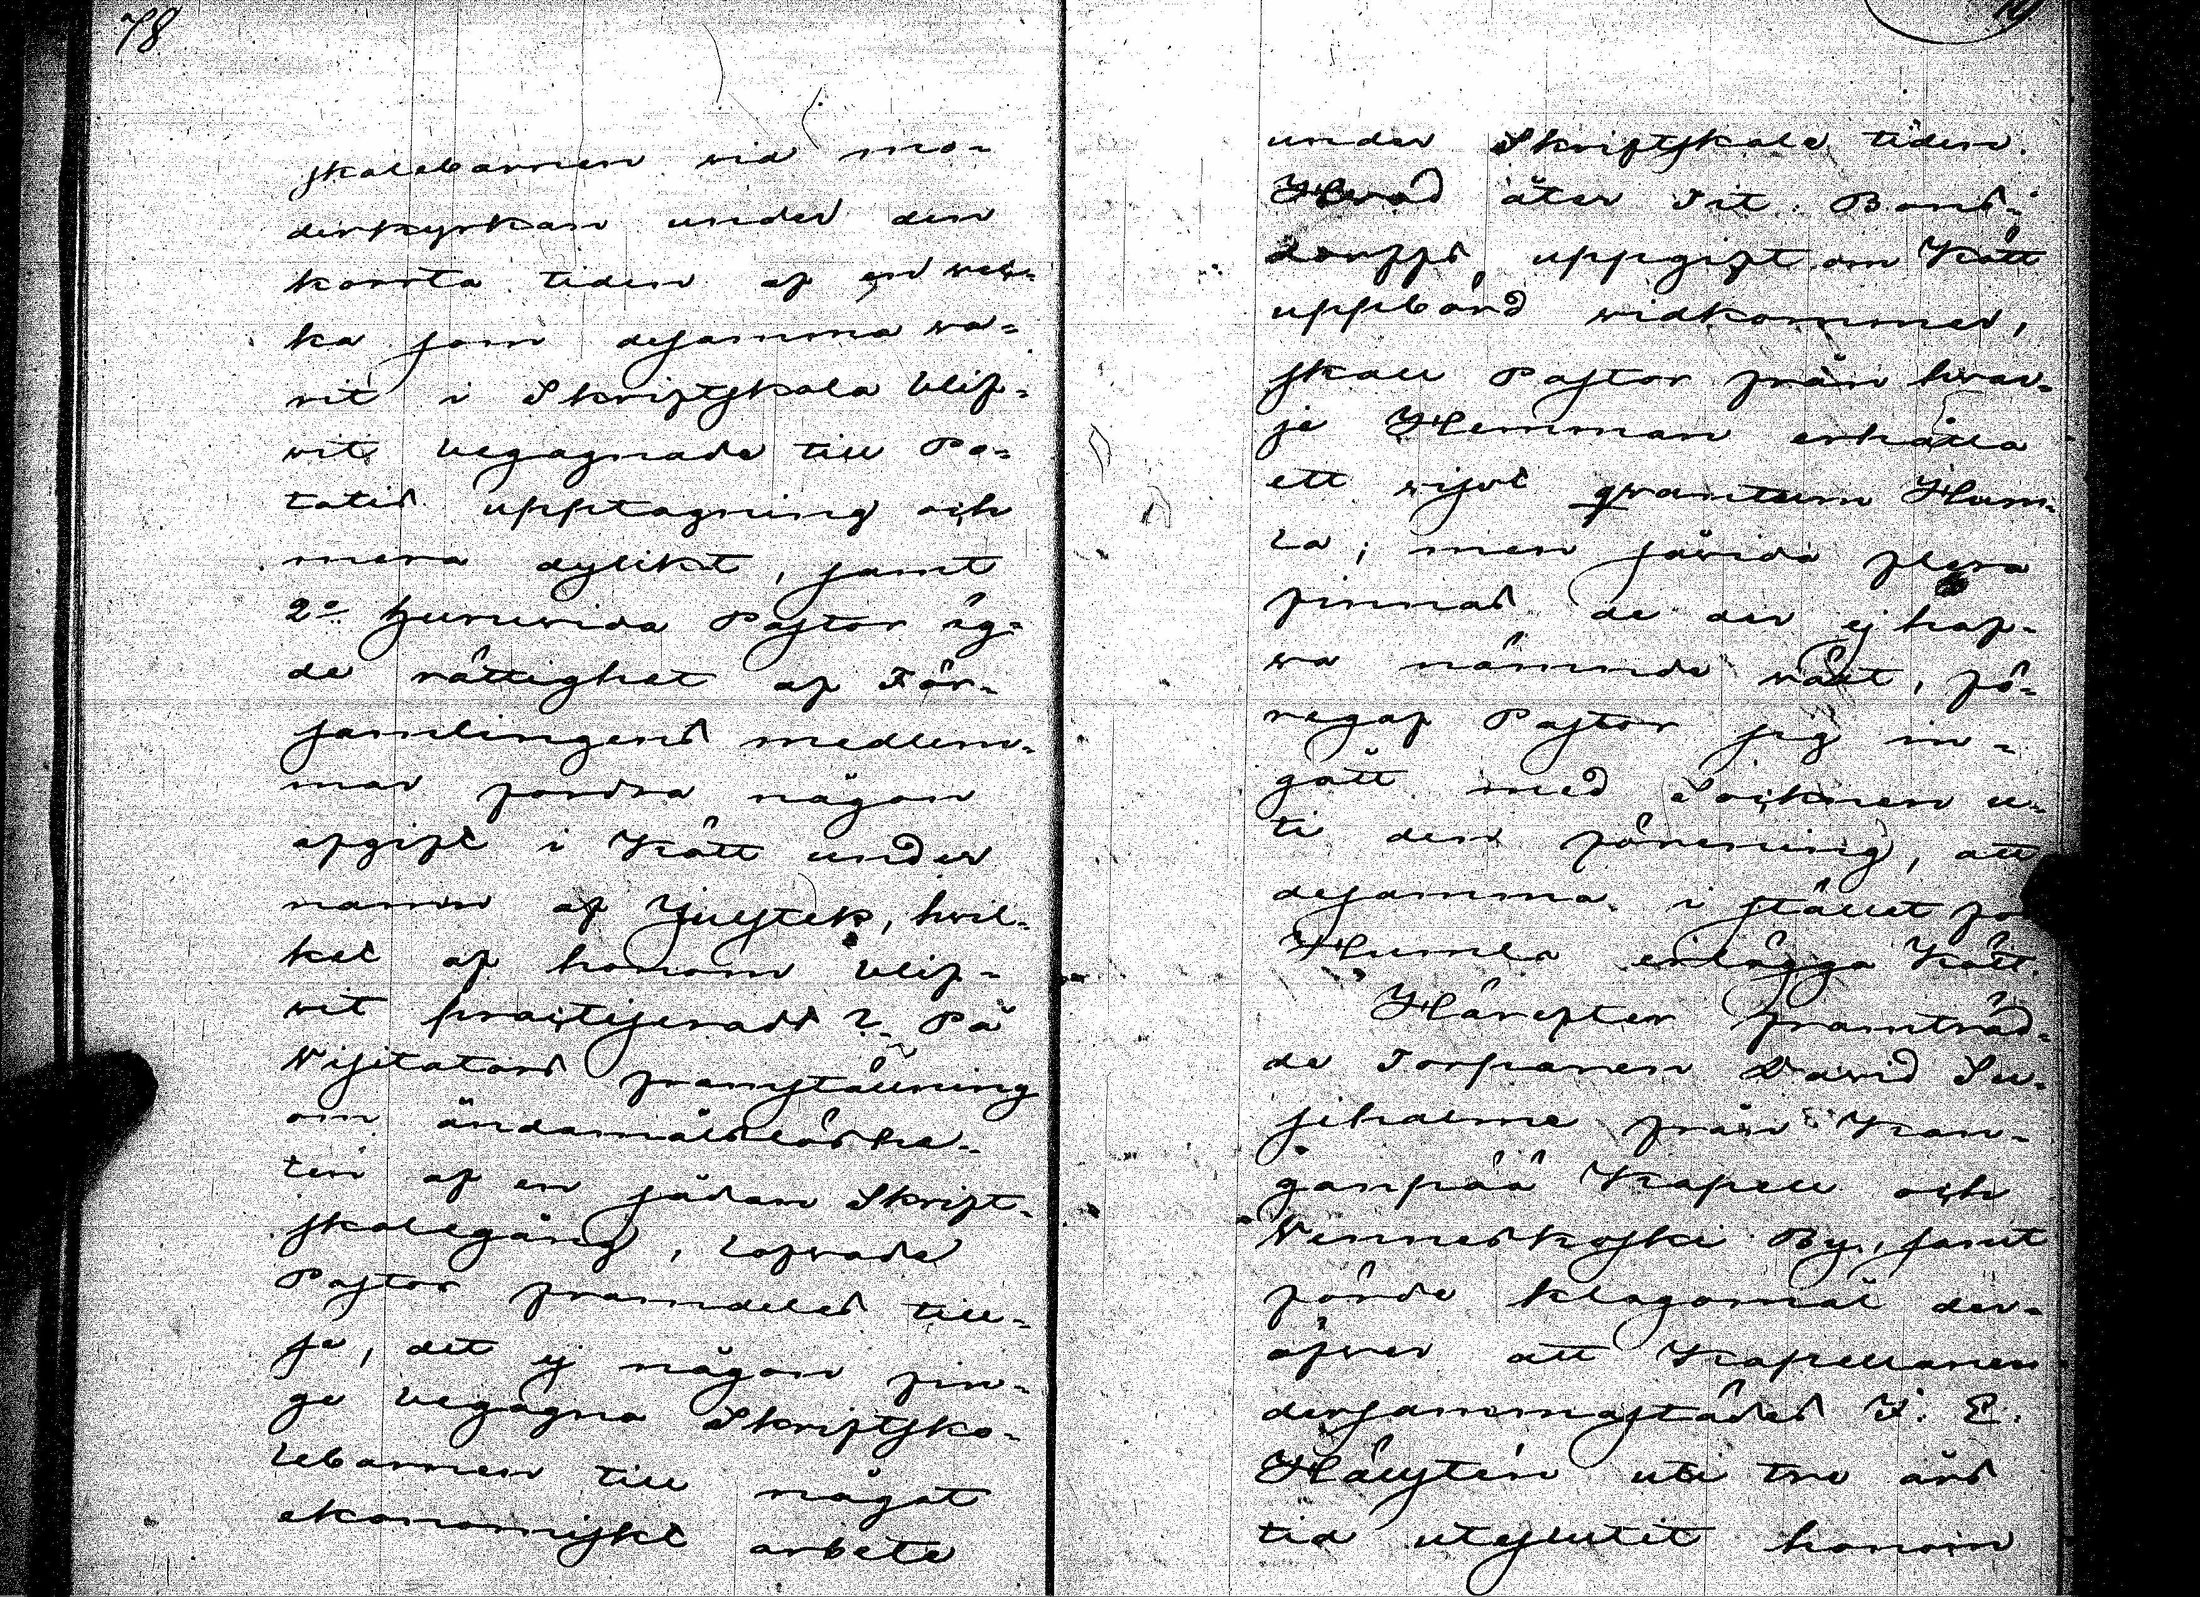 78
skolebarnen vid mo-
derkyrkan under den
korrta tiden af en vec-
ka som desamma va-
rit i Skriftskola blif-
vit begagnade till Po-
tatis upptagning och
mera dylikt, samt
2o huruvida Pastor äg-
de rättighet af För-
samlingens medlem-
mar fordra någon
afgift i Kött under
namn af Julstek, hvil-
ket af honom blif-
vit practiserads? På
Visitators framställning
om ändamålslöshe-
ten af en sådan Skrift-
skolegång, lofvade
Pastor framdeles till-
se, det ej någon fin-
ge begagna Skriftsko-
lebarnen till något
ekonomiskt arbete
19
under Skriftskole tiden.
Hvad åter Tit. Bons-
dorffs uppgift om Kött
uppbörd vidkommer,
skall Pastor från hvar-
je Hemman erhålla
ett visst qvantum Hum-
la; men såvida flera
finnas de der ej haf-
va nämnde växt, fö-
regaf Pastor sig in-
gått med Socknen u-
ti den förening, att
desamma i stället för
Humla erlägga Kött.
Härefter framträd-
de Torparen David Su-
siholme från Kan-
ganpää Kapell och
Venneskoski By, samt
förde klagomål der-
öfver att Kapellanen
dersammastädes J. E.
Hällstén uti tre års
tid uteslutit honom